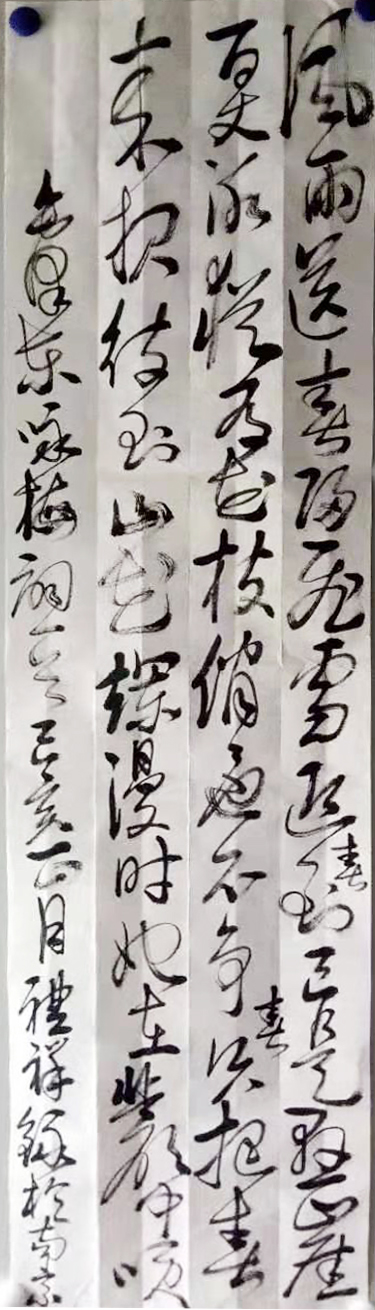 風雨送春歸飛雪迎春到已是懸崖
百丈冰猶有花枝俏也不争春只把春
来报待到山花爛漫时她在叢中笑
毛澤東咏梅詞一首己亥正月禮祥錄於南京